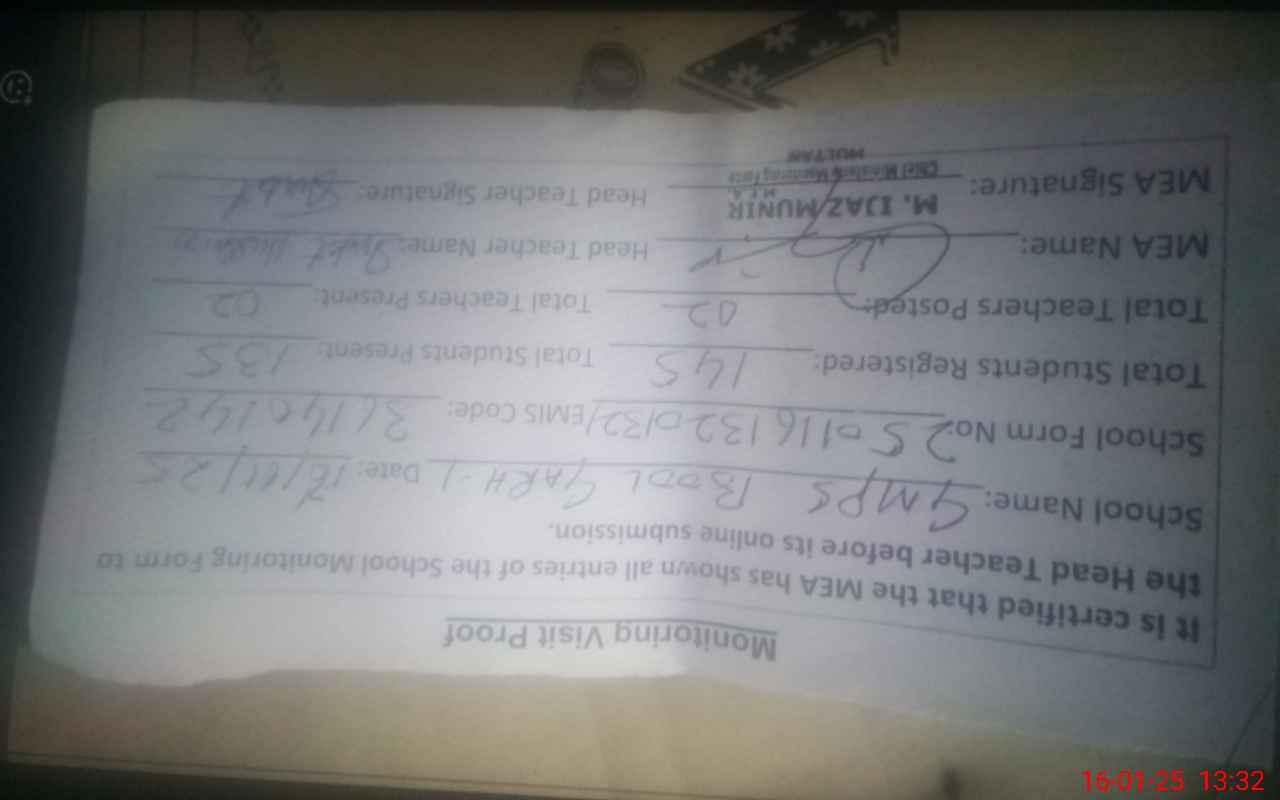 Monitoring Visit Proof
It is certified that the MEA has shown all entries of the School Monitoring Form to
the Head Teacher before its online submission.
School Name: GMPS BODL GARH-1 Date: 16/01/25
School Form No: 2501161320132 /EMIS Code: 36140142
Total Students Registered: 145 Total Students Present: 135
Total Teachers Posted: 02 Total Teachers Present: 02
MEA Name: Head Teacher Name:
M. IJAZ MUNIR
M.E.A.
MEA Signature: Head Teacher Signature:
Chief Minister's Monitoring Force
MULTAN
16-01-25 13:32